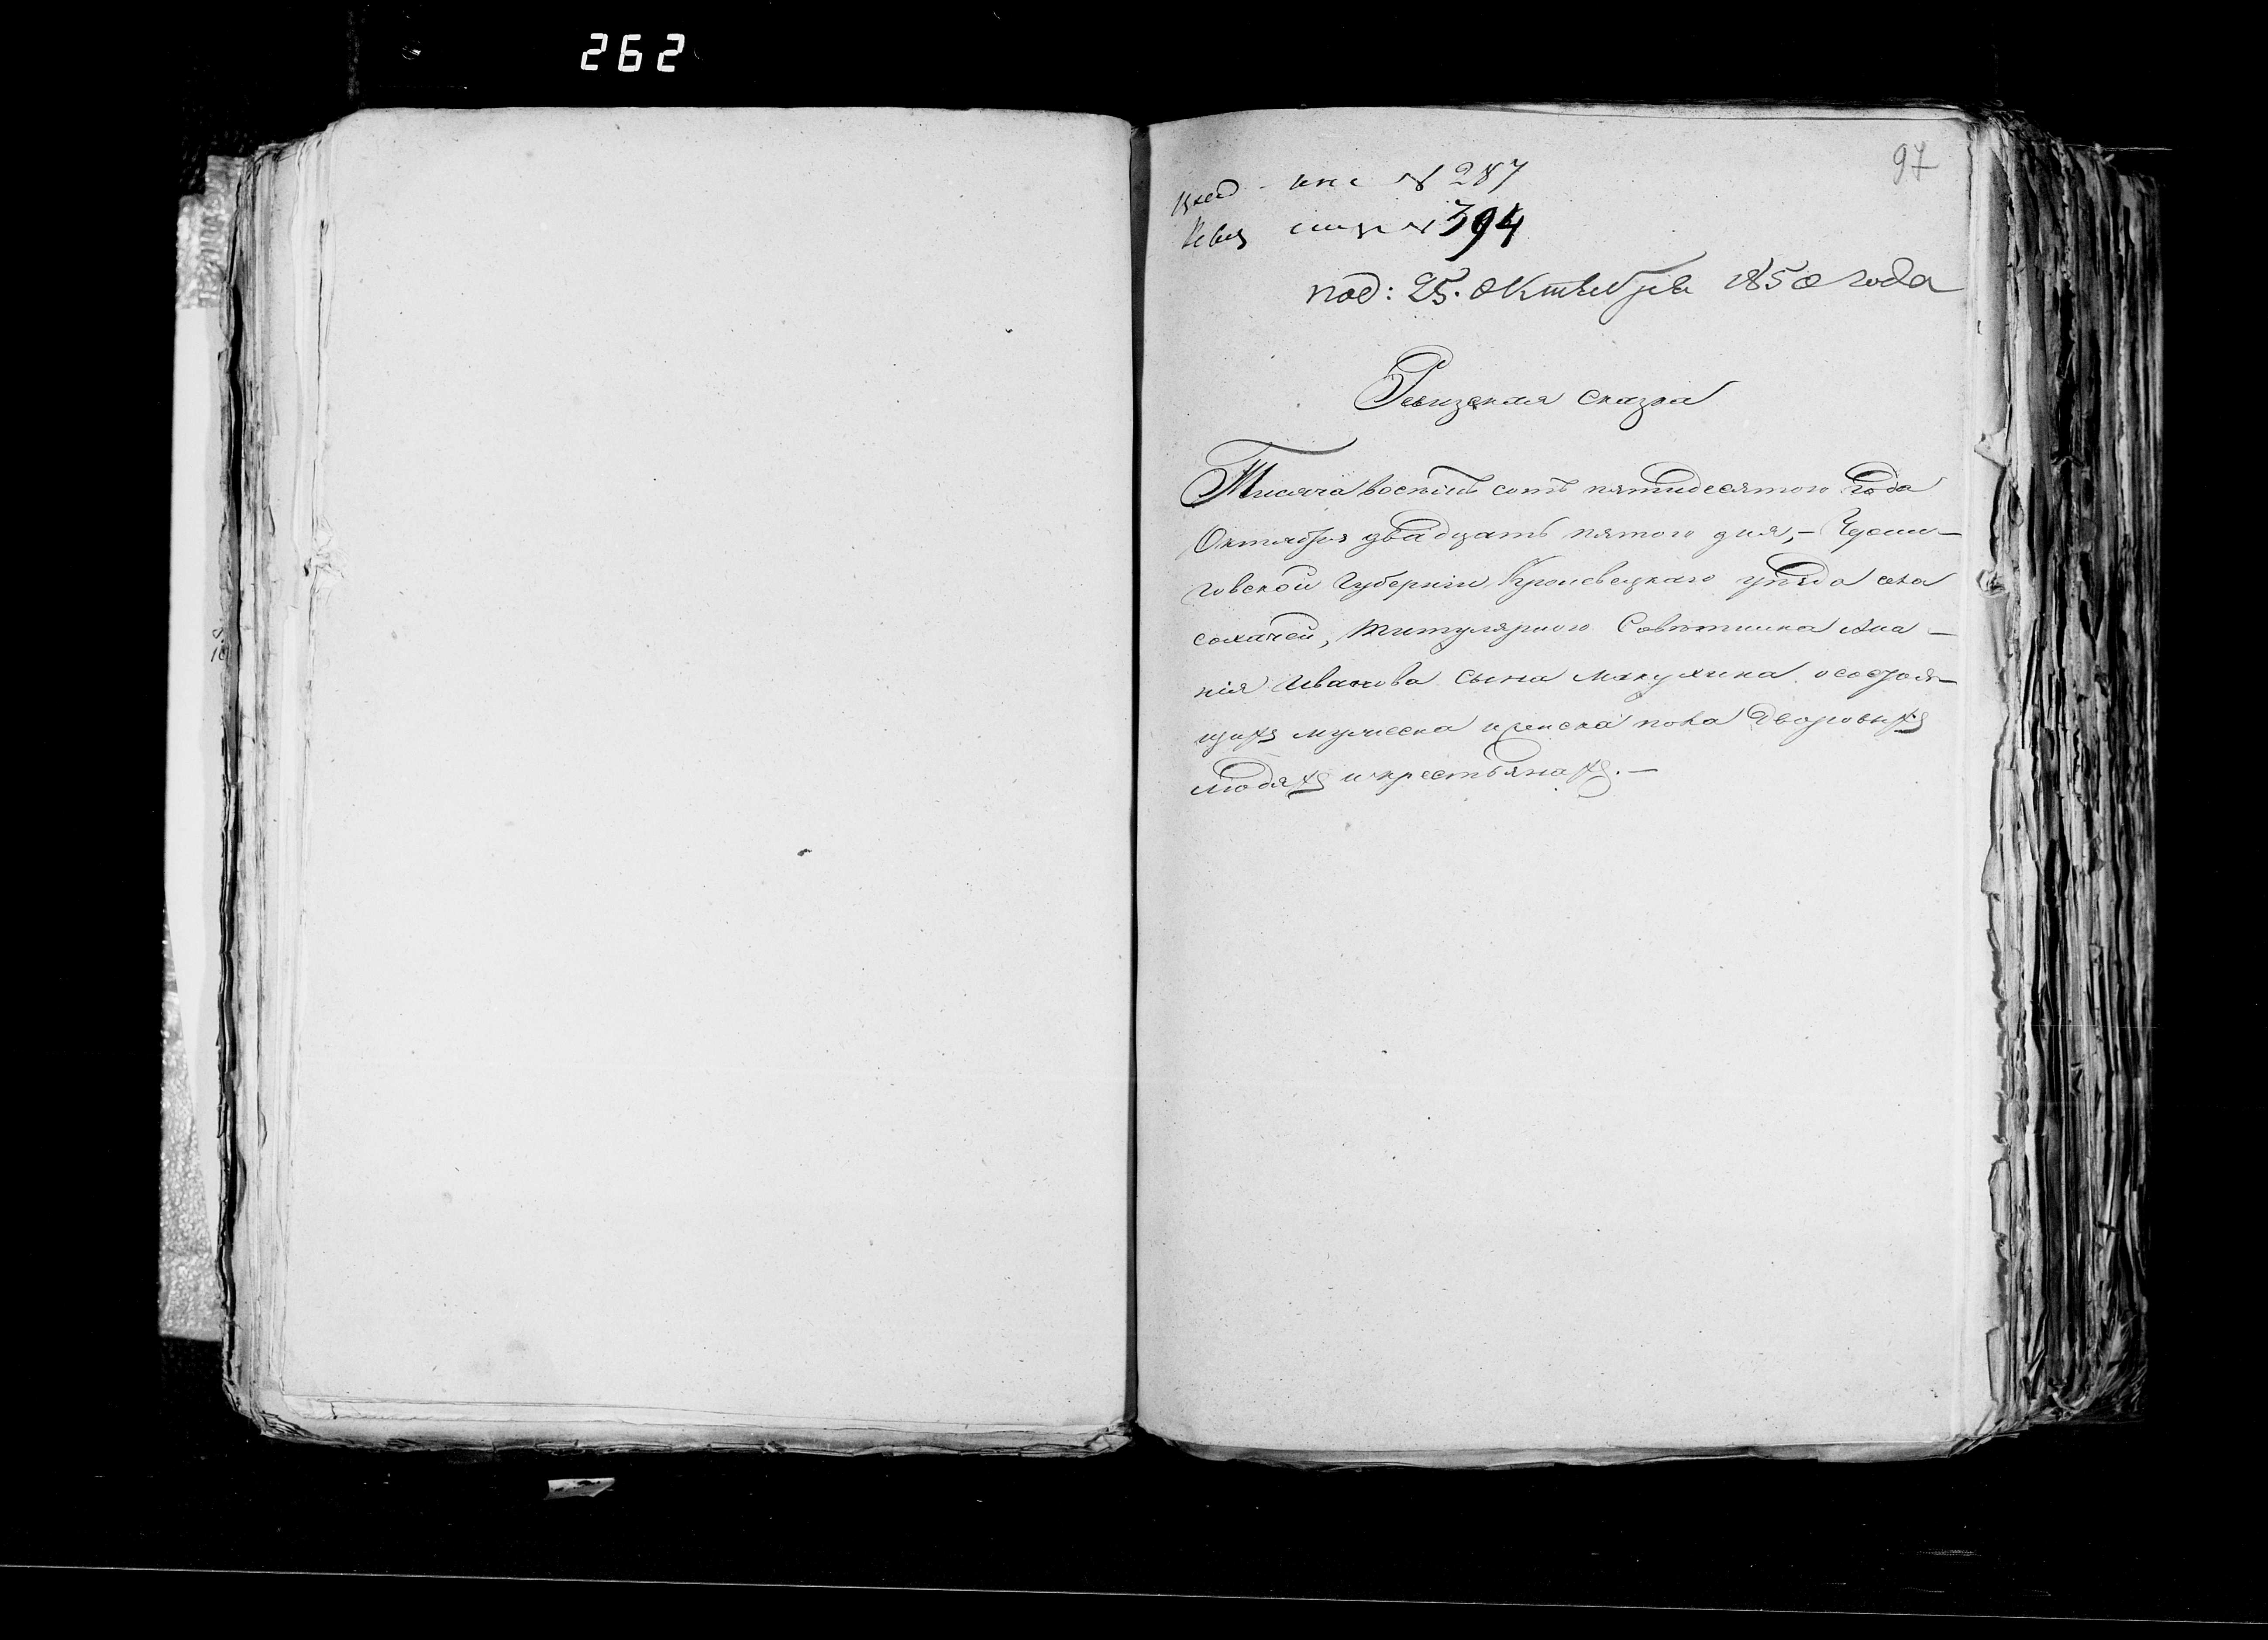 262
97
вход. кни № 287
Ревиз сказ № 394
под: 25. Октября 1850 года
Ревизская сказка
Тысяча восемь сотъ пятидесятого года
Октября двадцать пятого дня, — Черни-
говской Губерніи Кролевецкаго уѣзда села
сохачей, Титулярного Совѣтника Ана-
нія Иванова сына Макухина осостоя-
щихъ мужеска и женска пола дворовыхъ
людяхъ и крестьянахъ. —